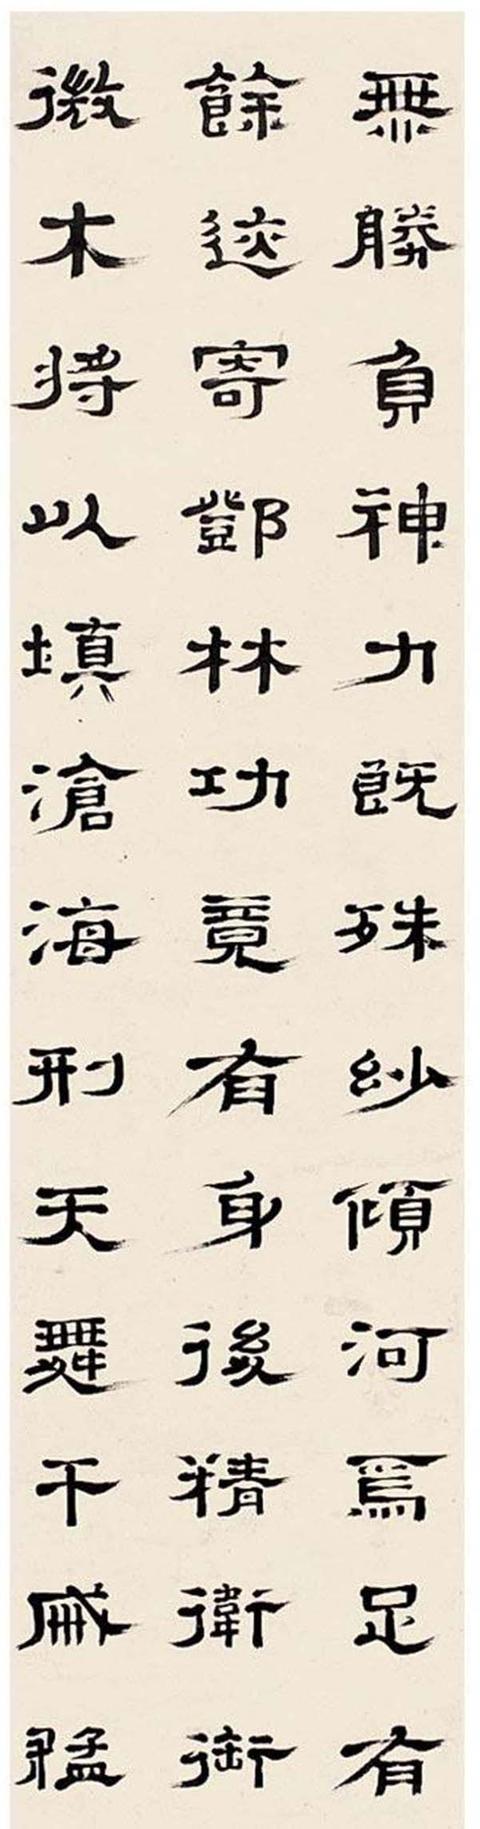 無勝負神力既殊玅傾河焉足有
餘迹寄鄧林功竟有身後精衛衘
微木將以填滄海刑天舞干戚猛